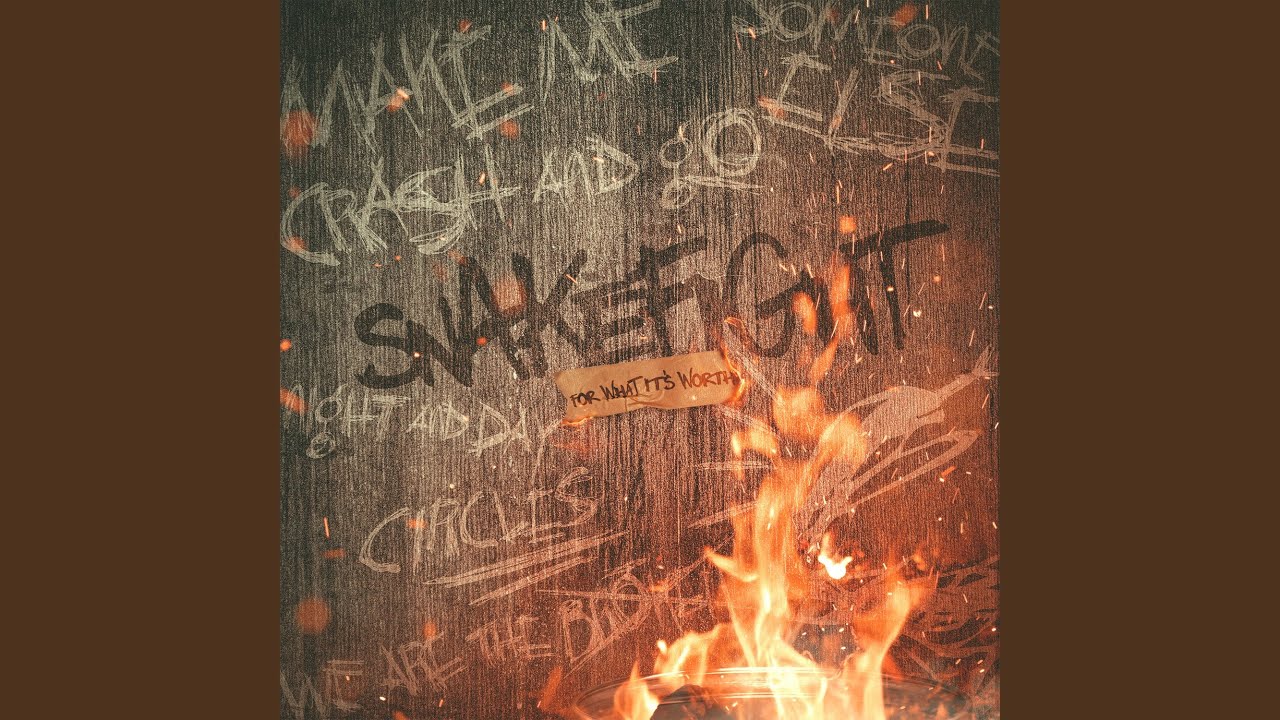 MAKE ME
SOMEONE
ELSE
CRASH AND gO
SNAKEFIGHT
FOR WHAT IT'S WORTH
NIgHT AND DAY
CIRCLES
WE ARE THE